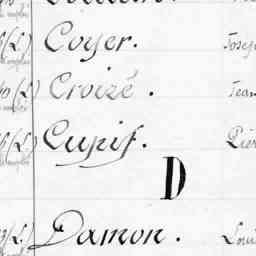 (L.) Coyer. Josep
(L.) Croizé. Jean
(L.) Cupif. Pier
D
(L.) Damon. Loui